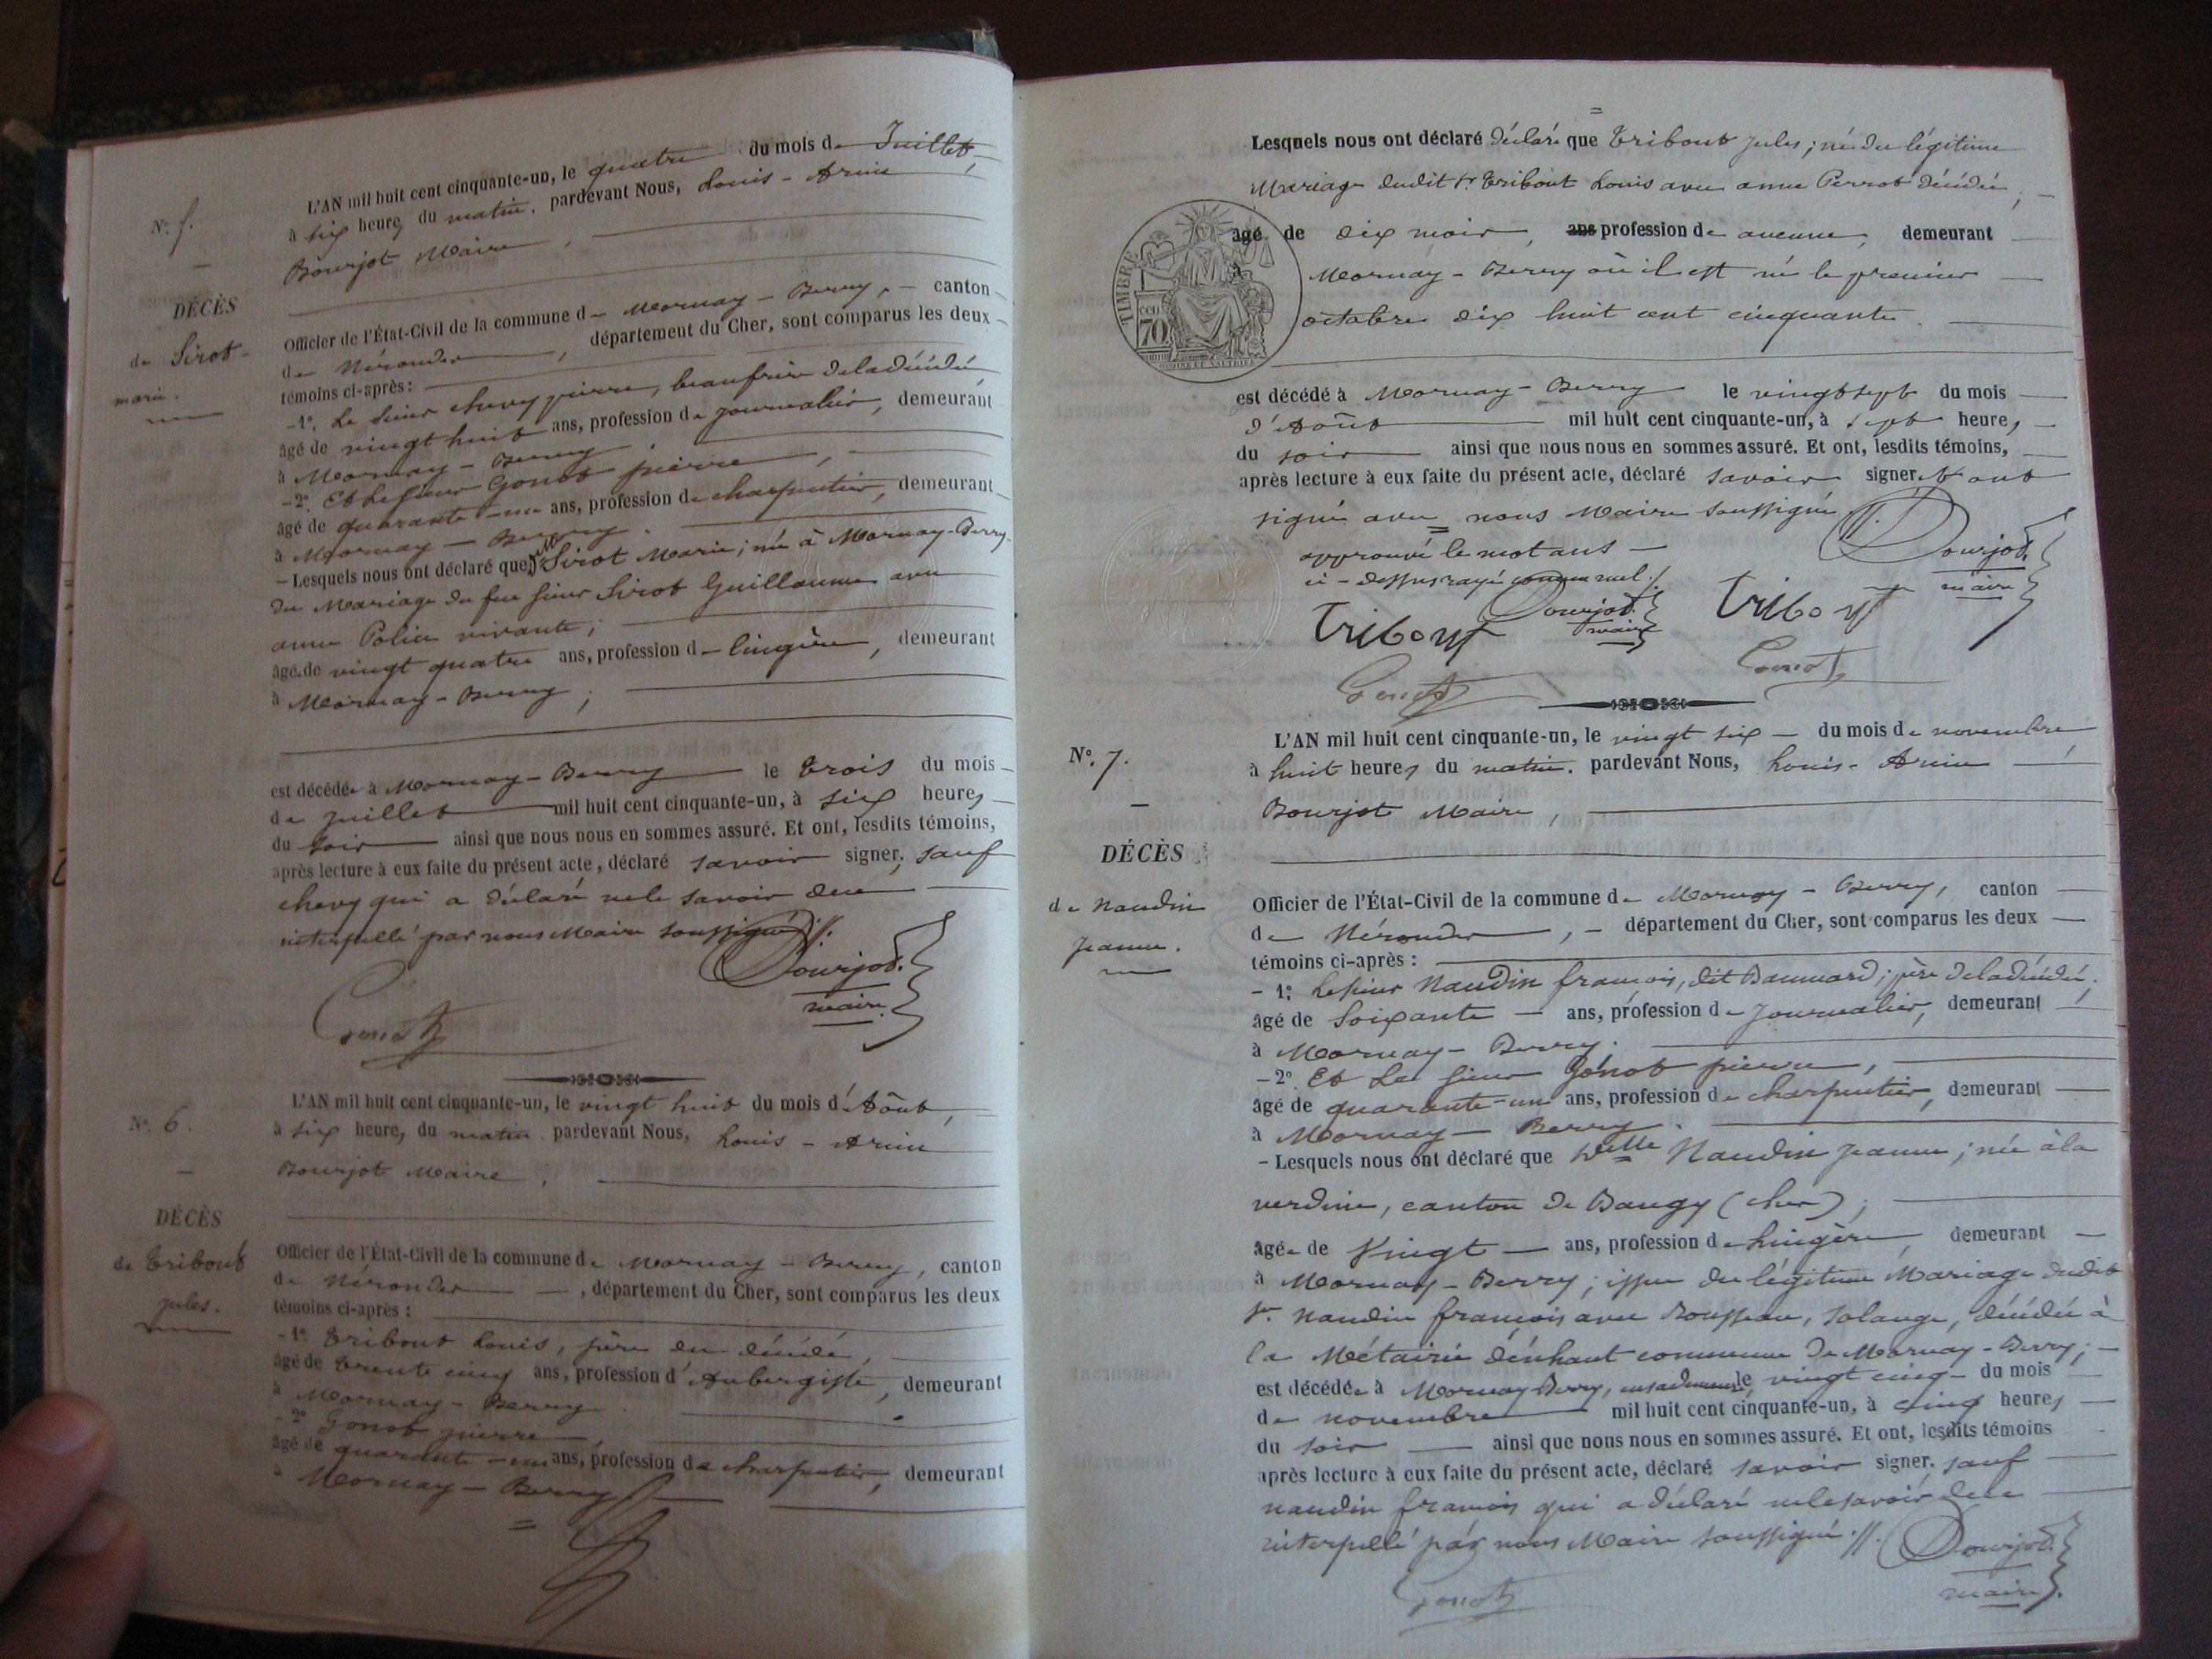 N.º 5.
—
DÉCÈS
de Sirot
marie.
L'AN mil huit cent cinquante-un, le quatre du mois de Juillet,
à six heures du matin. pardevant Nous, Louis - Armin
Bourjot Maire,
Officier de l'État-Civil de la commune de Mornay - Berry, canton
de Nérondes, département du Cher, sont comparus les deux
témoins ci-après :
- 1º. Le sieur chevy pierre, beaufrère deladécédée
âgé de vingt huit ans, profession de journalier, demeurant
à Mornay - Berry
- 2º. Et Le sieur Gonot pierre,
âgé de quarante-un ans, profession de charpentier, demeurant
à Mornay - Berry.
- Lesquels nous ont déclaré que Sirot Marie; née à Mornay-Berry
du Mariage de feu sieur Sirot Guillaume avec
anne Polin vivante;
âgée de vingt quatre ans, profession de lingère, demeurant
à Mornay - Berry;
est décédée à Mornay - Berry le trois du mois
de juillet mil huit cent cinquante-un, à six heures
du soir ainsi que nous nous en sommes assuré. Et ont, lesdits témoins,
après lecture à eux faite du présent acte, déclaré savoir signer, sauf
chevy qui a déclaré nele savoir de ce
interpellé par nous Maire soussigné ./.
Bourjot.
maire.
Gonot
Nº. 6.
—
DÉCÈS
de Tribout
jules.
L'AN mil huit cent cinquante-un, le vingt huit du mois d'Août,
à six heures du matin. pardevant Nous, Louis - Armin
Bourjot Maire,
Officier de l'État-Civil de la commune de Mornay - Berry, canton
de Nérondes, département du Cher, sont comparus les deux
témoins ci-après :
- 1º. Tribout Louis, père du décédé,
âgé de trente cinq ans, profession d'Aubergiste, demeurant
à Mornay - Berry
- 2º Gonot pierre,
âgé de quarante-un ans, profession de charpentier, demeurant
à Mornay - Berry
=
=
Lesquels nous ont déclaré déclaré que Tribout jules; né du légitime
Mariage dudit sr. Tribout Louis avec anne Perrot décédée;
âgé de dix mois, ans profession de aucune, demeurant
Mornay - Berry où il est né le premier
octobre dix huit cent cinquante.
TIMBRE
70
est décédé à Mornay - Berry le vingt sept du mois
d'Août mil huit cent cinquante-un, à sept heures,
du soir ainsi que nous nous en sommes assuré. Et ont, lesdits témoins,
après lecture à eux faite du présent acte, déclaré savoir signer. & ont
signé avec nous Maire soussigné
approuvé le mot ans
ci-dessus rayé comme nul ./.
Bourjot.
maire
Bourjot.
maire
Tribout
Tribout
Gonot
Gonot
Nº. 7.
—
DÉCÈS
de Naudin
jeanne.
L'AN mil huit cent cinquante-un, le vingt six du mois de novembre
à huit heures du matin. pardevant Nous, Louis - Armin
Bourjot Maire,
Officier de l'État-Civil de la commune de Mornay - Berry, canton
de Nérondes, département du Cher, sont comparus les deux
témoins ci-après :
- 1º. Lesieur Naudin françois, dit Baumard; père deladécédée;
âgé de Soixante ans, profession de Journalier, demeurant
à Mornay - Berry.
- 2º. Et Le sieur Gonot pierre,
âgé de quarante-un ans, profession de charpentier, demeurant
à Mornay - Berry.
- Lesquels nous ont déclaré que Delle Naudin jeanne; née àla
verdine, canton de Baugy (cher);
âgée de Vingt ans, profession de Lingère, demeurant
à Mornay - Berry; issue du légitime Mariage dudit
sr. Naudin françois avec Rousseau, solange, décédée à
la Métairie d'enhaut commune de Mornay - Berry;
est décédée à Mornay-Berry, ensademeure, le vingt cinq du mois
de novembre mil huit cent cinquante-un, à cinq heures
du soir ainsi que nous nous en sommes assuré. Et ont, lesdits témoins
après lecture à eux faite du présent acte, déclaré savoir signer. sauf
naudin françois qui a déclaré nelesavoir de ce
interpellé par nous Maire soussigné ./.
Bourjot.
maire.
Gonot